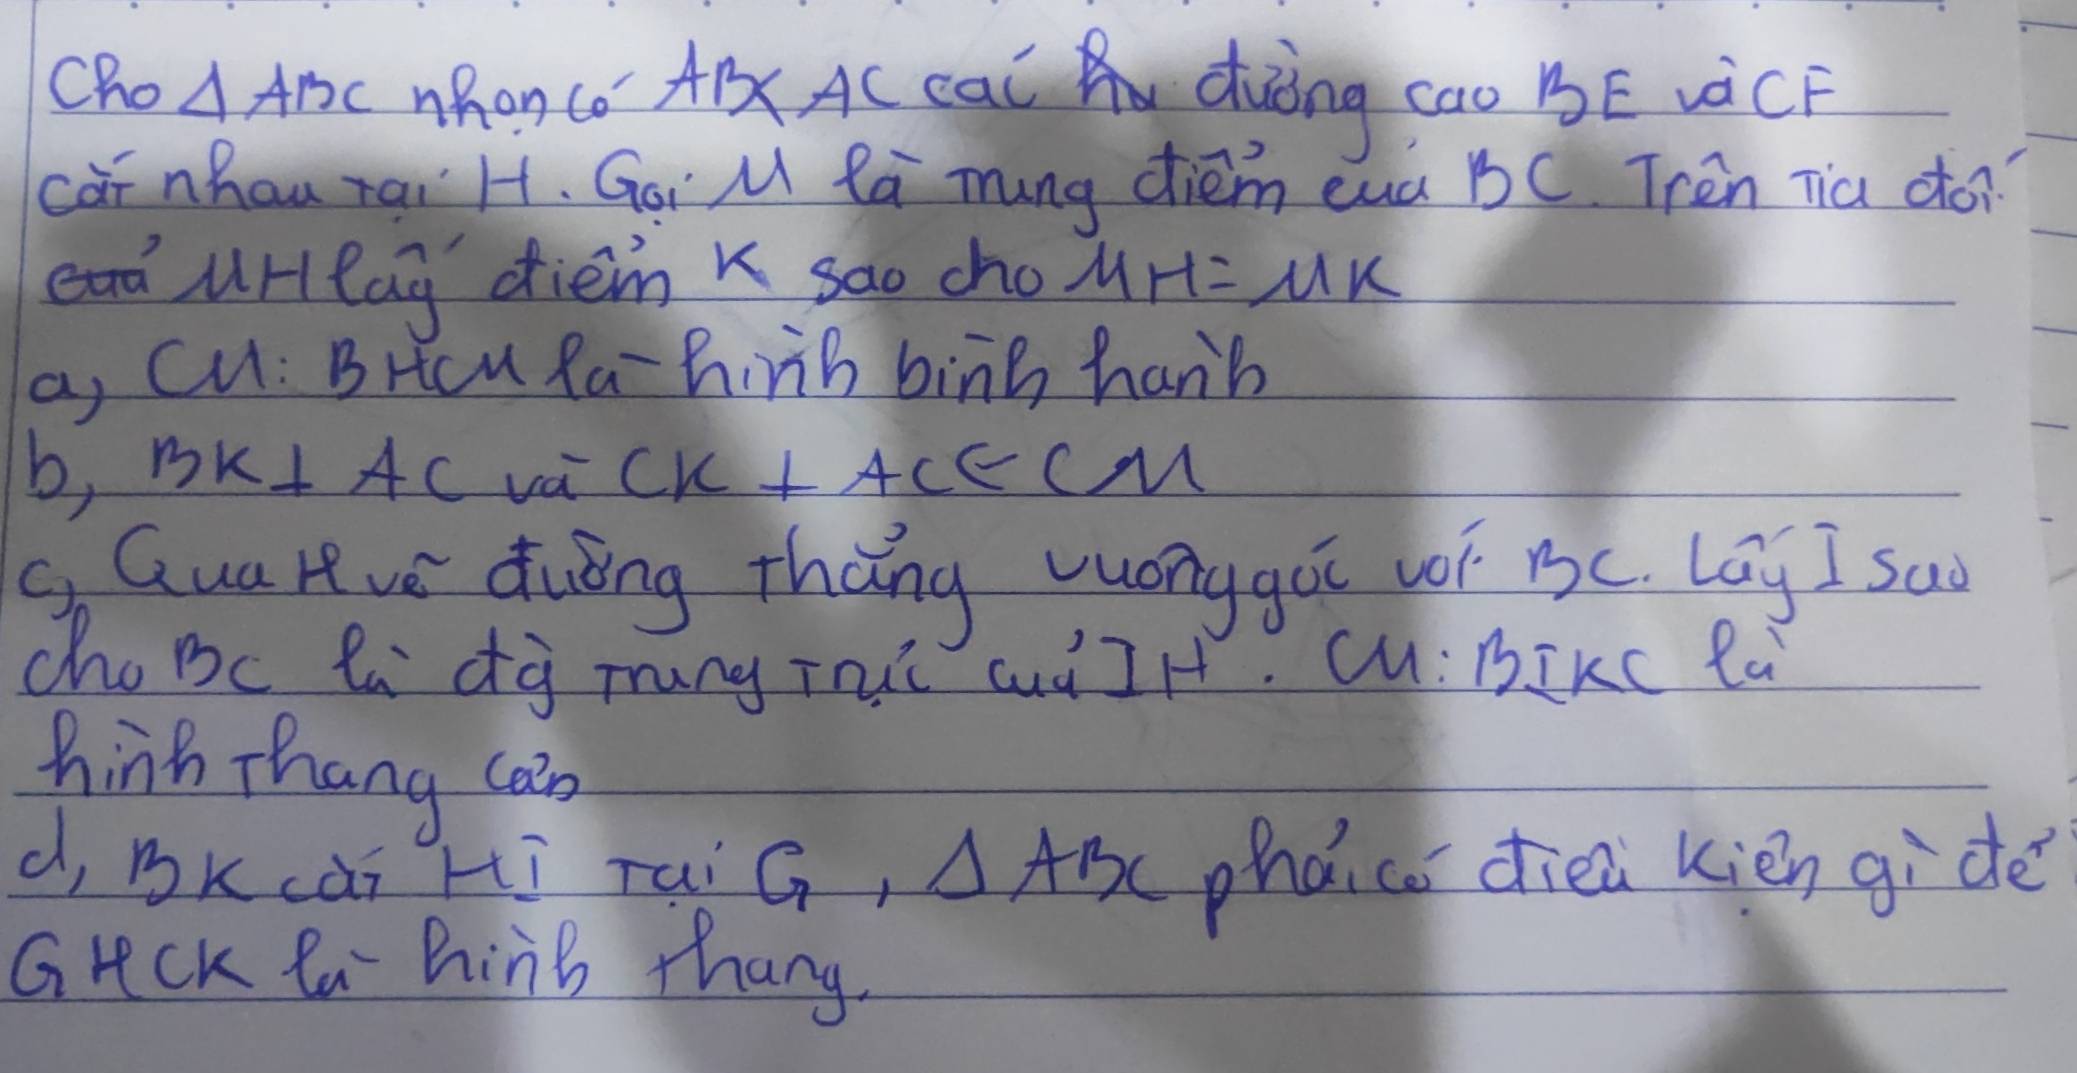 Cho Δ ABC nhọn có AB< AC các đường cao BE và CF
cắt nhau tại H. Gọi M là trung điểm của BC. Trên tia đối
của MH lấy điểm K sao cho MH = MK
a, CM: BHCM là hình bình hành
b, BK ⊥ AC và CK ⊥ AC ← CM
c, Qua H vẽ đường thẳng vuông góc với BC. Lấy I sao
cho BC là đg trung trực của IH. CM: BIKC là
hình thang cân
d, BK cắt HI tại G, Δ ABC phải có điều kiện gì để
GHCK là hình thang.